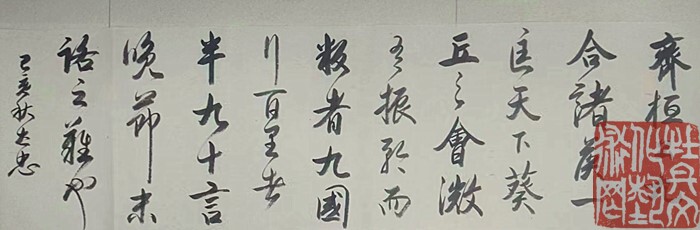 齊桓
合諸侯一
匡天下葵
丘之會微
有振矜而
叛者九國
行百里者
半九十言
晚節末
路之難也
己亥秋